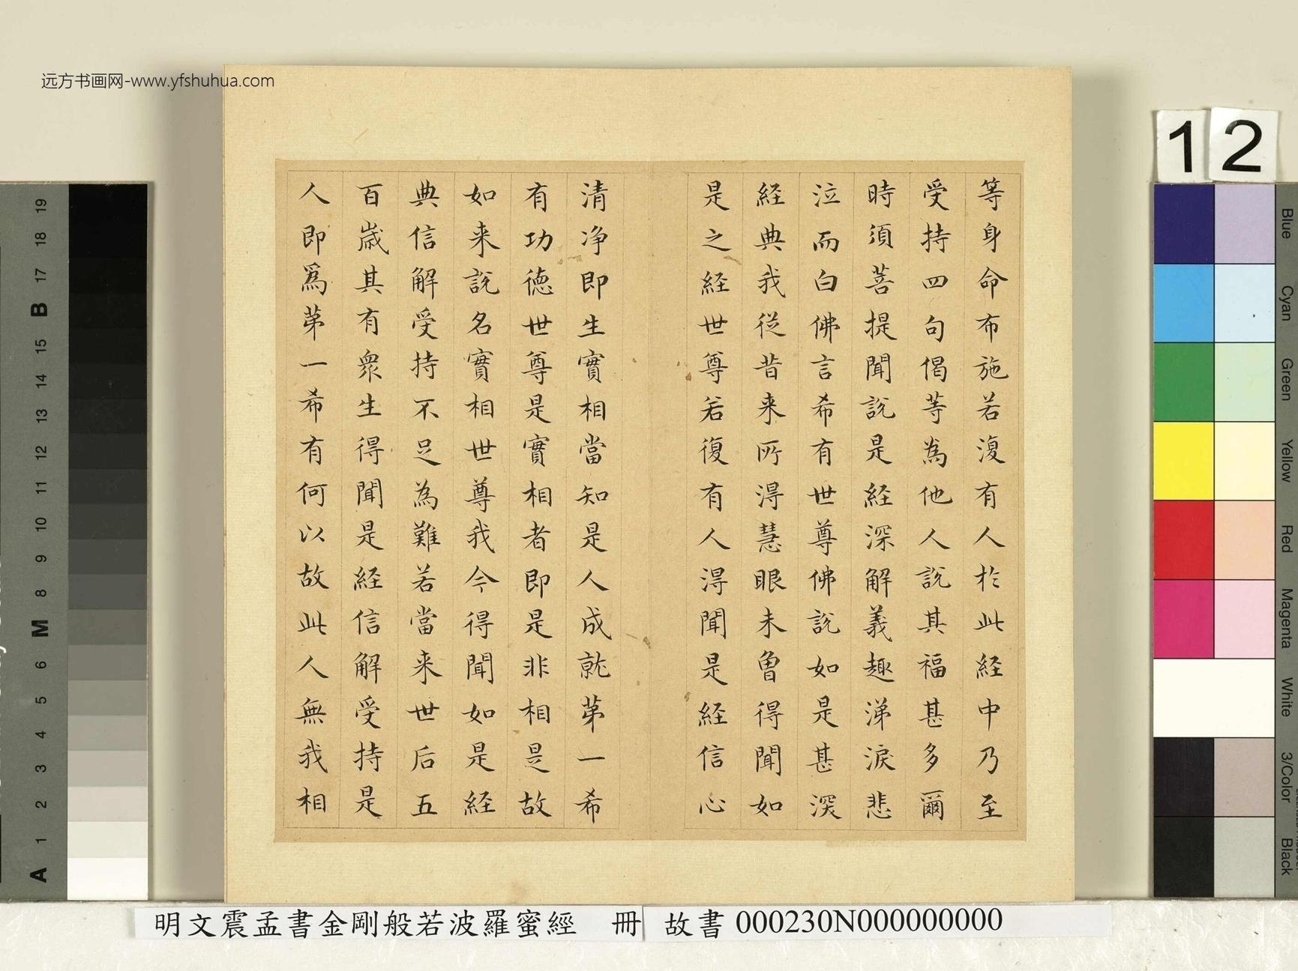 远方书画网-www.yfshuhua.com
12
等身命布施若復有人於此経中乃至
受持四句偈等為他人說其福甚多爾
時須菩提聞說是経深解義趣涕淚悲
泣而白佛言希有世尊佛說如是甚深
経典我從昔来所得慧眼未曾得聞如
是之経世尊若復有人得聞是経信心
清净即生實相當知是人成就苐一希
有功德世尊是實相者即是非相是故
如来說名實相世尊我今得聞如是経
典信解受持不足為難若當来世后五
百歳其有衆生得聞是経信解受持是
人即爲苐一希有何以故此人無我相
19
18
17
B
15
14
13
12
11
10
9
8
M
6
5
4
3
2
1
A
Blue
Cyan
Green
Yellow
Red
Magenta
White
3/Color
Black
明文震孟書金剛般若波羅蜜經 冊 故書 000230N000000000